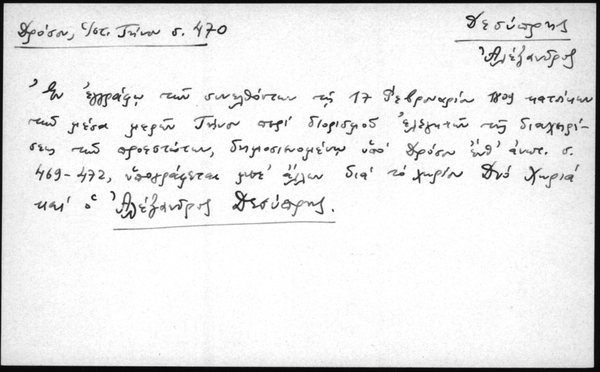 Δρόσου, Ἱστ. Τήνου σ. 470
Δεσύπρης
Ἀλέξανδρος
Ἐν ἐγγράφῳ τῶν συνελθόντων τῇ 17 Φεβρουαρίου 1809 κατοίκων
τῶν μέσα μερῶν Τήνου περί διορισμοῦ ἐλεγκτῶν τῆς διαχειρί-
σεως τῶν προεστώτων, δημοσιευομένῳ ὑπό Δρόσου ἔνθ' ἀνωτ. σ.
469-472, ὑπογράφεται μετ' ἄλλων διά τό χωρίον Δυό Χωριά
καί ὁ Ἀλέξανδρος Δεσύπρης.